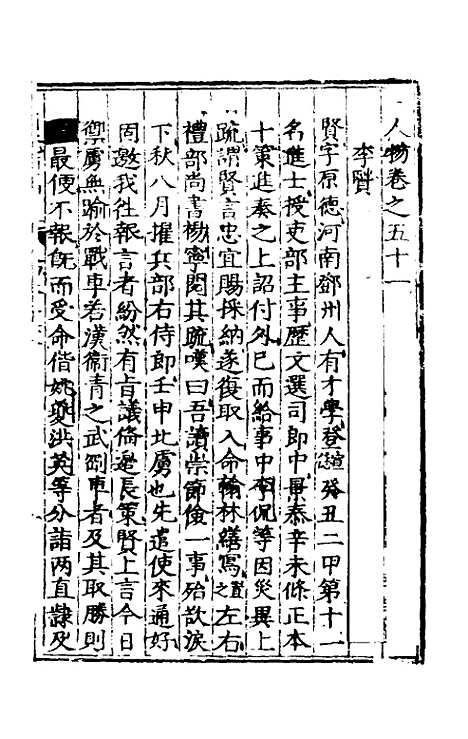 人物卷之五十一
李賢
賢字原德河南鄧州人有才學登宣癸丑二甲第十一
名進士授吏部主事歷文選司郎中景泰辛未條正本
十策進奏之上詔付外已而給事中李侃等因災異上
疏謂賢言忠宜賜採納遂復取入命翰林繕寫置之左右
禮部尚書楊寧閱其疏嘆曰吾讀崇節儉一事殆欲淚
下秋八月擢兵部右侍郎壬申北虜也先遣使來通好
因邀我往報言者紛然有旨議脩邊長策賢上言今日
禦虜無踰於戰車若漢衛青之武剛車者及其取勝則
最便不報既而受命偕姚夔洪英等分詣两直隸及